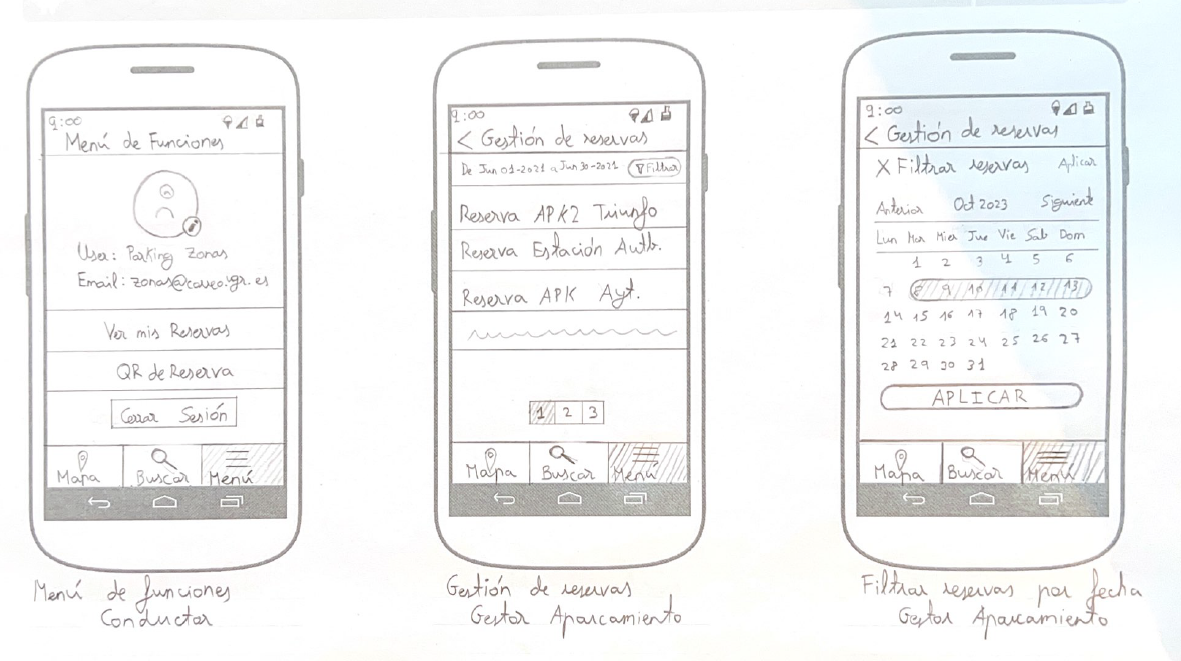 9:00
Menú de Funciones
User: Parking Zonas
Ver mis Reservas
QR de Reserva
Cerrar Sesión
Mapa Buscar Menú
Menú de funciones
Conductor
9:00
< Gestión de reservas
De Jun 01-2021 a Jun 30-2021 Filtrar
Reserva APK2 Triunfo
Reserva Estación Autb.
Reserva APK Ayt.
1 2 3
Mapa Buscar Menú
Gestión de reservas
Gestor Aparcamiento
9:00
< Gestión de reservas
X Filtrar reservas Aplicar
Anterior Oct 2023 Siguiente
Lun Mar Mier Jue Vie Sab Dom
1 2 3 4 5 6
7 8 9 10 11 12 13
14 15 16 17 18 19 20
21 22 23 24 25 26 27
28 29 30 31
APLICAR
Mapa Buscar Menú
Filtrar reservas por fecha
Gestor Aparcamiento